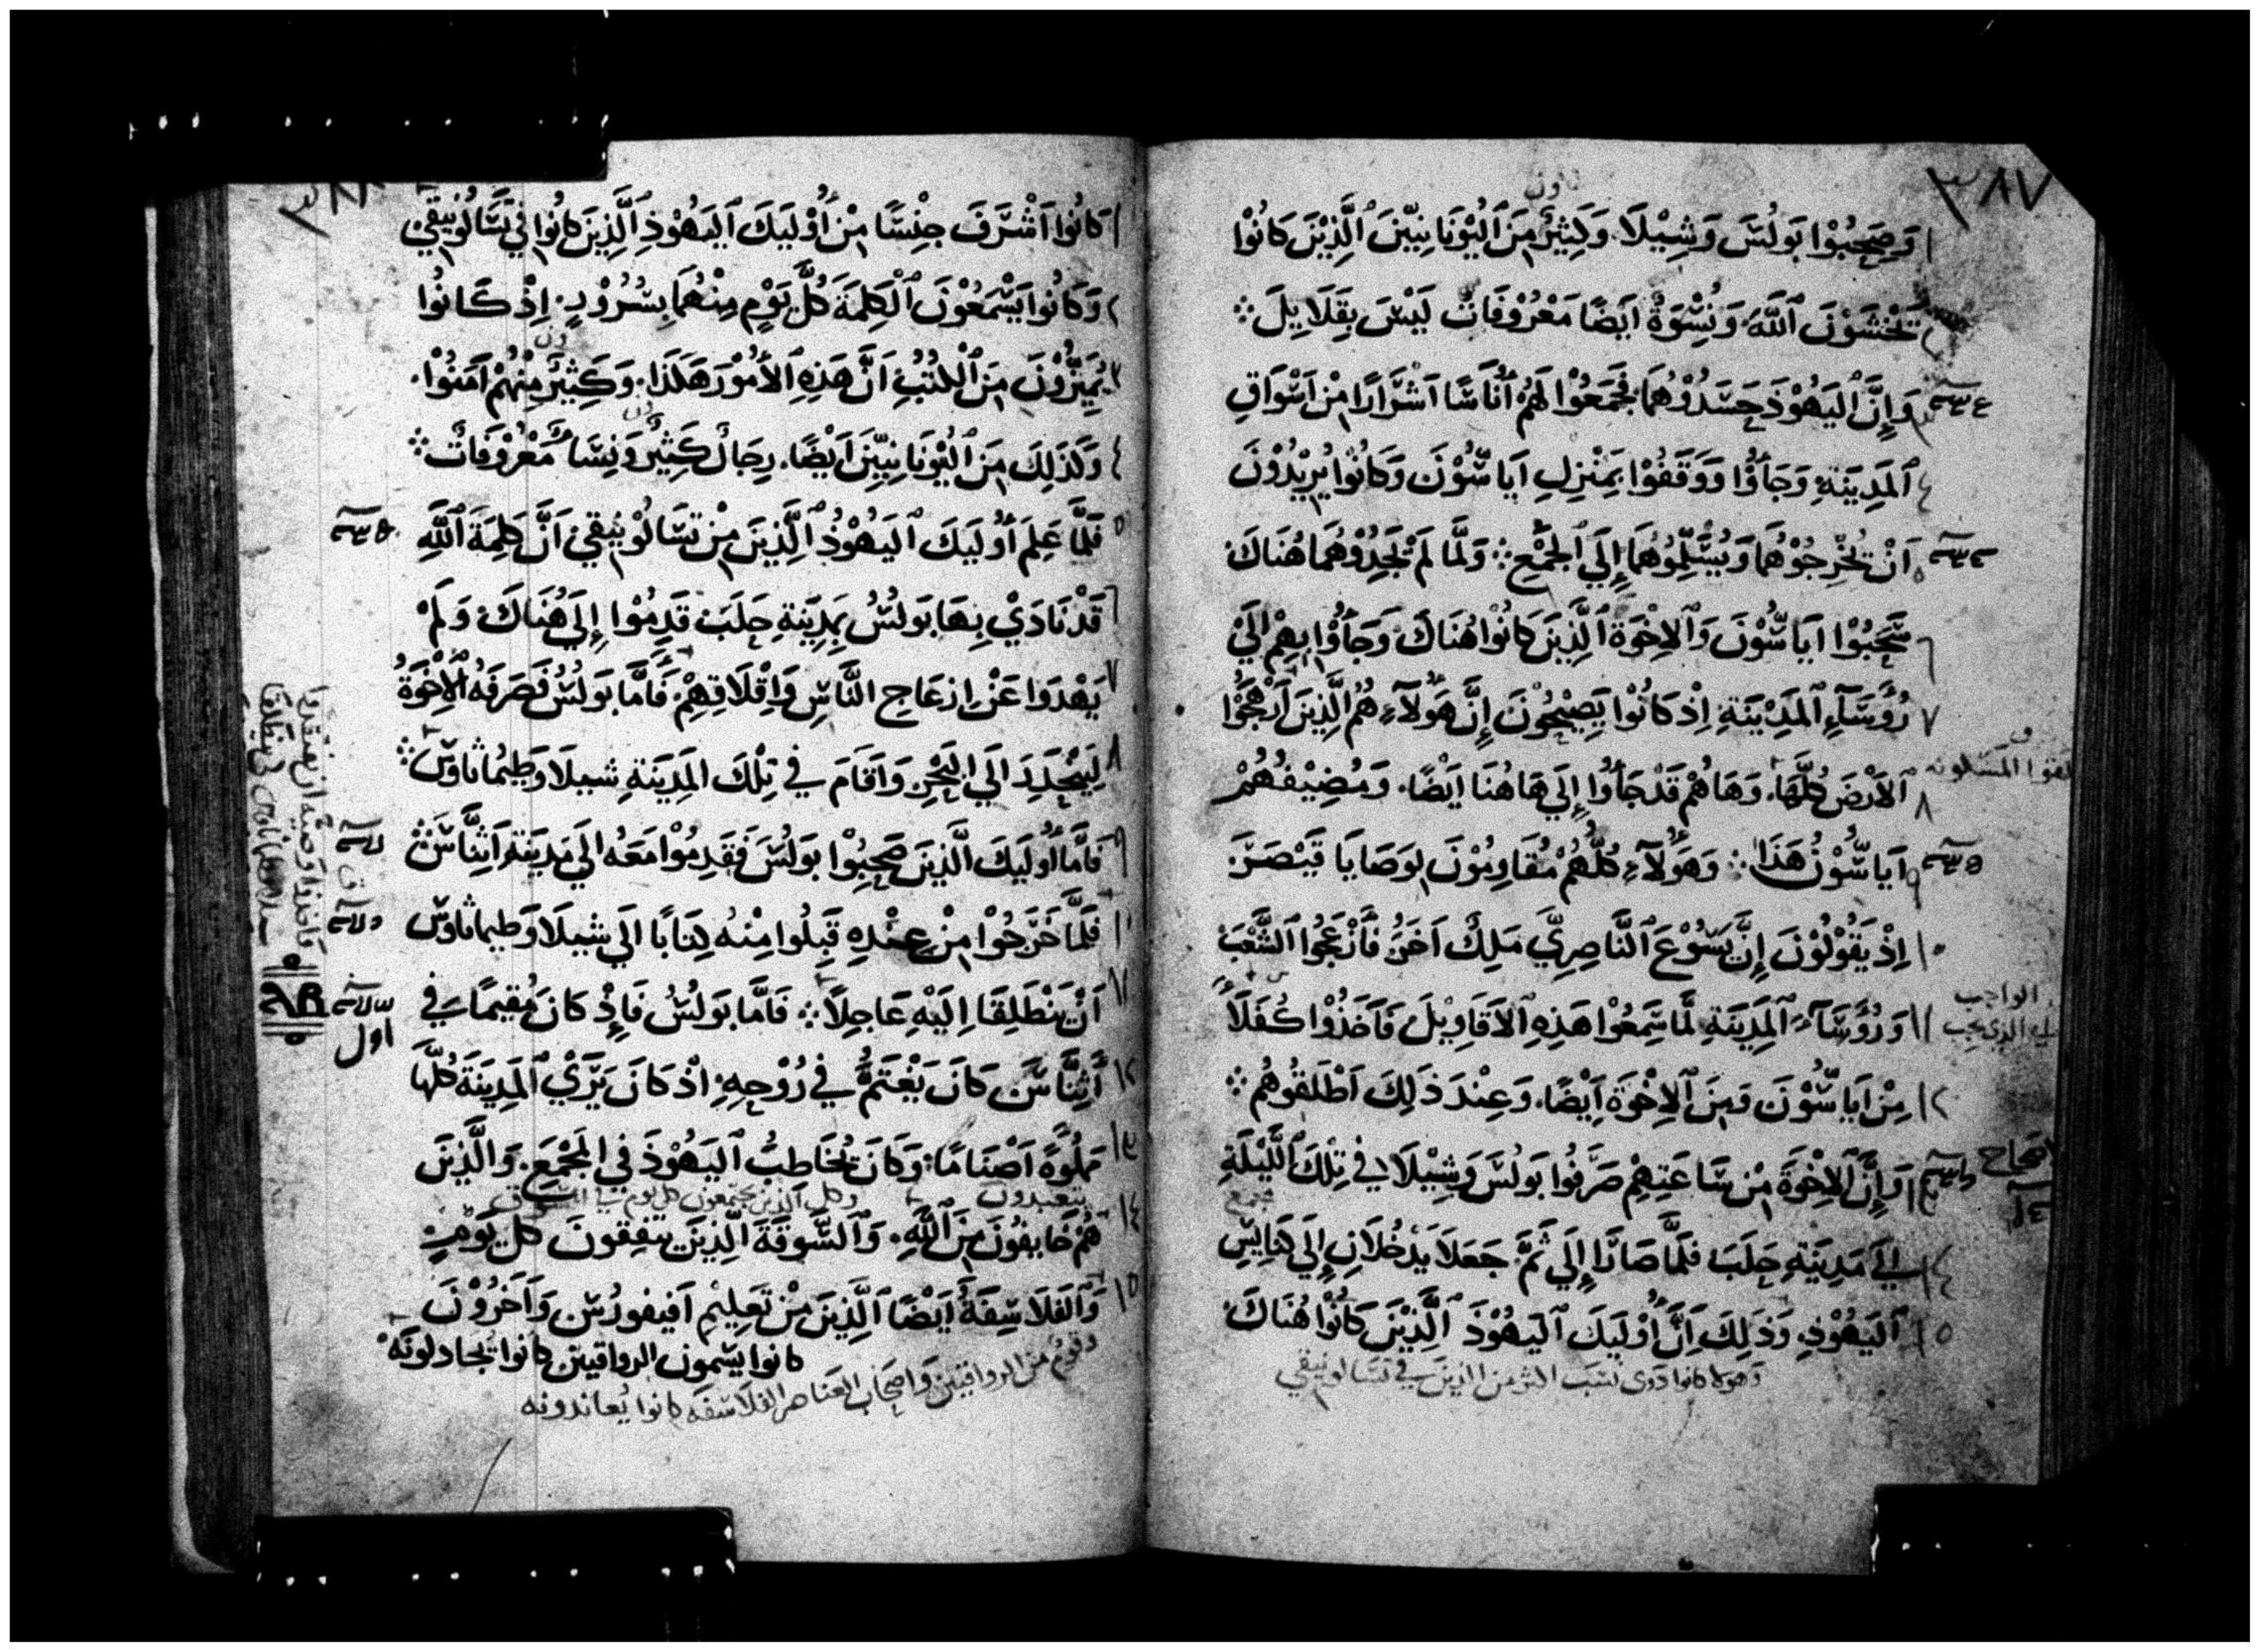 ٣٨٧
١ وَصَحِبُوْا بَولُسَ وَشِيْلَا. وَكَثِيْرٌ مِنَ ٱليُوْنَانِيّيْنَ ٱلَّذِيْنَ كَانُوْا
يَخْشَوْنَ ٱللَّهَ. وَنِسْوَةٌ اَيضًا مَعْرُوْفَاتٌ لَيْسَ بِقَلَايِلَ ⁘
وَإِنَّ ٱليَهُوْذَ حَسَدُوْهُمَا فَجَمَعُوْا لَهُمْ أُنَاسًا اَشْرَارًا مِنْ اَسْوَاقِ
٤ ٱلمَدِيْنَةِ. وَجَاَؤُا وَوَقَفُوْا بِمَنْزِلِ اَيَاسُّوْنَ وَكَانُوْا يُرِيْدُوْنَ
٥ اَنْ يُخْرِجُوْهُمَا وَيُسَلِّمُوْهُمَا إِلَي ٱلجَمْعِ ⁘ وَلَمَّا لَمْ يَجِدُوْهُمَا هُنَاكَ
٦ سَحَبُوْا اَيَاسُّوْنَ وَٱلاِخْوَةَ ٱلَّذِيْنَ كَانُوْا هُنَاكَ وَجَاَؤُا بِهِمْ اِلَيْ
٧ رُؤَسَآءِ ٱلمَدِيْنَةِ. اِذْ كَانُوْا يَصِيْحُوْنَ إِنَّ هَؤُلآءِ هُمُ الَّذِيْنَ اَرْهَجُوْا
٨ ٱلاَرْضَ كُلَّهَا. وَهَاهُمْ قَدْ جَاَؤُا إِلَي هَاهُنَا اَيْضًا. وَمُضِيْفُهُمْ
٩ اَيَاسُّوْنُ هَذَا ⁘ وَهَؤُلَآءِ كُلُّهُمْ مُقَاوِمُوْنَ لِوَصَايَا قَيْصَرَ
١٠ اِذْ يَقُوْلُوْنَ إِنَّ يَسُوْعَ ٱلنَّاصِرِيَّ مَلِكٌ اَخَرُ فَاَزْعَجُوْا ٱلشَّعْبَ
١١ وَرُؤَسَآءَ ٱلمَدِيْنَةِ لَمَّا سَمِعُوْا هَذِهِ ٱلاَقَاوِيْلَ فَاَخَذُوْا كُفَلَآءَ
١٢ مِنْ اَيَاسُّوْنَ وَمِنَ ٱلاِخْوَةِ اَيْضًا. وَعِنْدَ ذَلِكَ اَطْلَقُوْهُمْ ⁘
اصحاح
١٣ وَإِنَّ ٱلاِخْوَةَ مِنْ سَاعَتِهِمْ صَرَفُوا بَولُسَ وَشِيْلَا في تِلْكَ ٱللَّيْلَةِ
١٤ إِلَي مَدِيْنَةِ حَلَبَ فَلَمَّا صَارَا إِلَي ثَمَّ جَعَلَا يَدْخُلَانِ إِلَي كَنَايِسِ
١٥ ٱليَهُوْذِ. وَذَلِكَ اَنَّ اُوْلَيكَ ٱليَهُوْذَ ٱلَّذِيْنَ كَانُوْا هُنَاكَ
وهولا كانوا ذوى نسب اكثر من الذين في تسالونيقي
١ كَانُوا اَشْرَفَ جِنْسًا مِنْ اُوْلَيكَ ٱليَهُوْذِ ٱلَّذِيْنَ كَانُوا في تَسَالُوْنِيقي
٢ وَكَانُوا يَسْمَعُوْنَ ٱلْكَلِمَةَ كُلَّ يَوْمٍ مِنْهُمَا بِسُرُوْرٍ. اِذْ كَانُوا
٣ يُمَيِّزُوْنَ مِنَ ٱلْكُتُبِ اَنَّ هَذِهِ ٱلاُمُوْرَ هَكَذَا. وَكَثِيْرٌ مِنْهُمْ آمَنُوْا.
٤ وَكَذَلِكَ مِنَ ٱليُوْنَانِيِّيْنَ اَيْضًا. رِجَالٌ كَثِيْرٌ وَنِسَاءٌ مَعْرُوْفَاتٌ ⁘
٥ فَلَمَّا عَلِمَ اُوْلَيكَ ٱليَهُوْذُ ٱلَّذِيْنَ مِنْ تَسَالُوْنِيقي اَنَّ كَلِمَةَ ٱللَّهِ
٦ قَدْ نَادَيْ بِهَا بَولُسُ بِمَدِيْنَةِ حَلَبَ قَدِمُوْا إِلَي هُنَاكَ وَلَمْ
٧ يَهْدَوا عَنْ اِزعَاجِ النَّاسِ وَاِقْلَاقِهِمْ. فَاَمَّا بَولُسُ فَصَرَفَهُ ٱلاِخْوَةُ
٨ لِيَنْحَدِرَ اِلَي البَحْرِ وَاَقَامَ في تِلْكَ المَدِيْنَةِ شيلَا وَطِيمَاثاوسُ ⁘
٩ فَاَمَّا اُولَيكَ الَّذِيْنَ صَحِبُوْا بَولُسَ فَقَدِمُوْا مَعَهُ اِلَي مَدِيْنَةِ اَثِنَّاسَ ⁘
١٠ فَلَمَّا خَرَجُوْا مِنْ عِنْدِهِ قَبِلُوا مِنْهُ كِتَابًا اِلَي شيلَا وَطيماثاوسَ
١١ اَنْ يَنْطَلِقَا اِلَيْهِ عَاجِلًا ⁘ فَاَمَّا بَولُسُ فَاِذْ كَانَ مُقِيمًا في
اول
١٢ اَثِنَّاسَ كَانَ يَغْتَمُّ في رُوْحِهِ. اِذْ كَانَ يَرَيْ ٱلمَدِيْنَةَ كُلَّهَا
١٣ مَمْلُوَّةً اَصْنَامًا. وَكَانَ يُخَاطِبُ ٱليَهُوْذَ في المَجْمَعِ. وَالَّذِيْنَ
يتعبدون وكل الذين يجتمعون كل يوم في السوق
١٤ هُمْ خَايفُوْنَ مِنَ ٱللَّهِ. وَٱلسُّوقَةَ الَّذِيْنَ يَتَّفِقُونَ كل يَوْمٍ
١٥ وَٱلفَلَاسِفَةُ اَيْضًا ٱلَّذِيْنَ مِنْ تَعلِيْمِ اَفيفورُسَ وَاَخَرُوْنَ
كانوا يسَمون الرواقيين كانوا يُجَادلونَهُ
وقومٌ من الرواقيين وَاصحَاب العناصر الفلاسفَه كانوا يُعاندونه